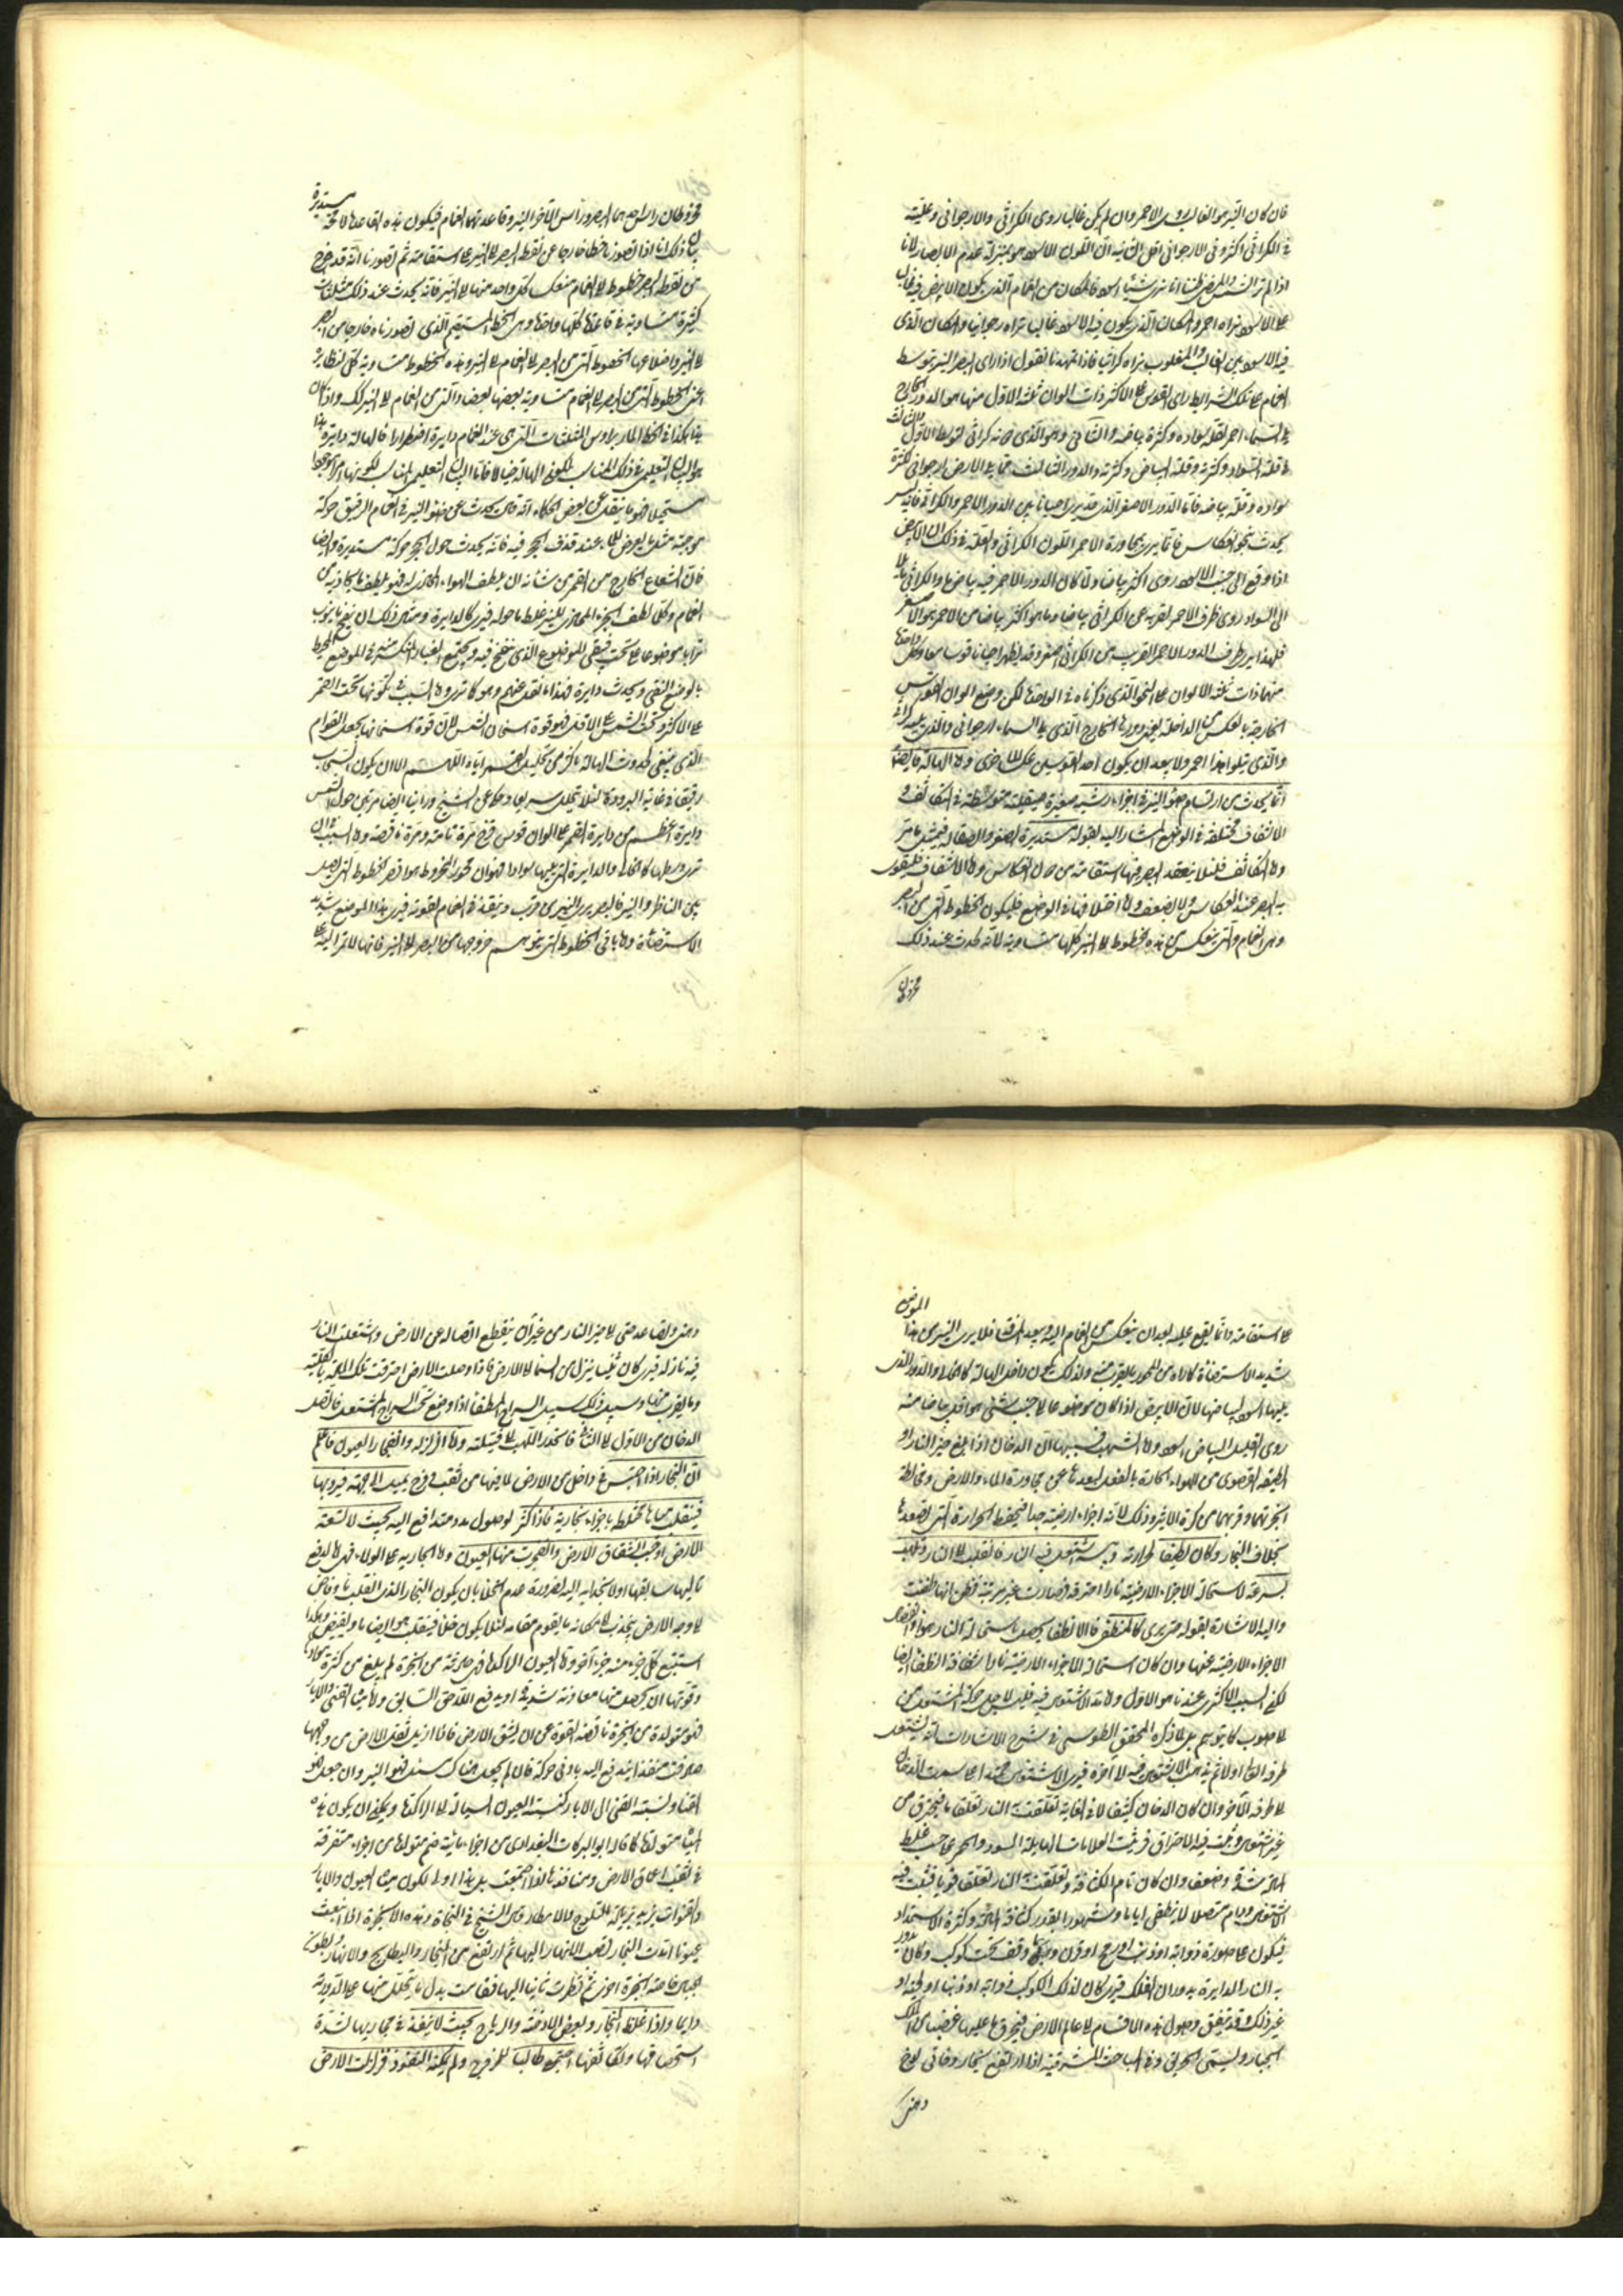 فان كان النير هو الغالب روى الاحمر وان لم يكن غالبا روى الكراثى والارجوانى وغلبته
فى الكراثى اكثر وفى الارجوانى اقل الثانية ان اللون الاسود هو بمنزلة عدم الابصار لانا
اذا لم نر الشمس والمضى ظننا انا نرى شيئا اسود فالمكان من الغمام الذى يكون الابيض فيه غالب
على الاسود نراه احمر والمكان الذى يكون فيه الاسود غالب نراه ارجوانيا والمكان الذى
فيه الاسود بين الغالب والمغلوب نراه كراثيا فاذا تمهد هذا فنقول اذا راى البصر النير بتوسط
الغمام على تلك الشرايط راى القوس على الاكثر ذات الوان ثلثة الاول منها هو الدور الخارج
فى السماء احمر لقلة سواده وكثرة بياضه والثانى وهو الذى دونه كراثى لتوسطه الاول والثالث
فى قلة السواد وكثرته وقلة البياض وكثرته والدور الثالث مما يلى الارض ارجوانى لكثرة
سواده وقلة بياضه فاما الدور الاصفر الذى قد يرى احيانا بين الدور الاحمر والكراثى فانه ليس
يحدث بنحو انعكاس فانما يرى بمجاورة الاحمر اللون الكراثى والعلة فى ذلك ان الابيض
اذا وقع الى جنب الاسود روى اكثر بياضا ولما كان الدور الاحمر فيه بياض ما والكراثى مائل
الى السواد روى طرف الاحمر لقربه من الكراثى اكثر بياضا وما هو اكثر بياضا من الاحمر هو الاصفر
فلهذا يرى طرف الدور الاحمر القريب من الكراثى اصفر وقد يظهر احيانا قوسا معا وكل واحدة
منهما ذات ثلثة الالوان على النحو الذى ذكرناه فى الواحدة لكن وضع الوان القوس
الخارجة بالعكس من الداخلة يعنى دورها الخارج الذى يلى السماء ارجوانى والذى يليه كراثى
والذى يتلو هذا احمر ولا يبعد ان يكون احد القوسين عكسا للاخرى واما الهالة فايضا
انما يحدث من ارتسام ضوء النير فى اجزاء رشية صغيرة صيقلية متوسطة فى التكاثف و
الالتفاف مختلفة فى الوضع المشار اليه بقوله مستديرة الصغر والصقالة فيشبه ما مر
واما التكاثف فلئلا ينفذ البصر فيها استقامة من دون انعكاس واما الاشفاف فليقوى
به البصر عند انعكاس ولا يضعف واما اختلافها فى الوضع فليكون الخطوط التى من البصر
وهى الغمام والتى ينعكس من هذه الخطوط الى النير كلها متساوية لانه يحدث عند ذلك
مخروطان
مخروطان راسهما البصر وراس الآخر النير وقاعدتهما الغمام فيكون هذه القاعدة لا محة مستديرة
بيان ذلك انا اذا تصورنا خطا خارجا من نقطة البصر الى النير على استقامة ثم تصورنا انه قد خرج
من نقطة البصر خطوط الى الغمام منعكس كل واحد منها الى النير فانه يحدث عند ذلك مثلثات
كثيرة متساوية فى قاعدة كلها واحدة وهى الخط المستقيم الذى تصورناه خارجا من البصر
الى النير واضلاعها الخطوط التى من البصر الى الغمام الى النير وهذه الخطوط متساوية كل لنظايره
اعنى الخطوط التى من البصر الى الغمام متساوية بعضها لبعض والتى من الغمام الى النير كذلك واذا كان
هكذا فى الخط المار برؤس المثلثات التى هى عند الغمام دايرة اضطرارا فالهالة دايرة هذا
هو البيان التعليمى فى ذلك المناسب لكون الهالة خيالا فاما البيان التعليمى المناسب لكونها امرا موجودا
مستحيلا فهو ما ينقل عن بعض الحكماء انه قال يحدث عن ضوء النير فى الغمام الرقيق حركة
موجية مثل ما يعرض للماء عند قذف الحجر فيه فانه يحدث حول الحجر حركة مستديرة وايضا
فان الشعاع الخارج من القمر من شانه ان يلطف الهواء المحاذى له فهو يلطف ما يحاذيه من
الغمام وكلما لطف الجزء المحاذى للنير غلظ ما حوله فيرى كالدايرة ومثل ذلك ان ينفخ بانبوب
ترابا موضوعا على تخت فينقى الموضع الذى ينفخ فيه ويجتمع الغبار المنكشر فيه فى الموضع المحيط
بالموضع النقى ويحدث دايرة فهذا ما نقل عنهم وهو كما ترى واما السبب فى تكونها تحت القمر
على الاكثر وتحت الشمس على الاقل فهو قوة اسخان الشمس لان قوة اسخانها يجعل القوام
الذى ينبغى لحدوث الهالة باكثر من تحليل القمر اياه اللهم الا ان يكون السحاب
رقيقا فى غاية البرودة لئلا يتحلل سريعا وحكى عن الشيخ وراينا ايضا مرتين حول الشمس
دايرة اعظم من دايرة القمر على الوان قوس قزح مرة تامة ومرة ناقصة واما السبب فى ان
نرى وسطها كالخلاء والدايرة التى يليها سوادا فهو ان محور المخروط هو اقصر الخطوط التى يصل
بين الناظر والنير فالبصر يرى النير من قرب وينفذ فى الغمام لقوته فيرى هذا الموضع شديد
الاستضاءة واما باقى الخطوط التى يتوهم خروجها من البصر الى النير فانها لا تمر اليه على
على استقامة وانما يقع عليه بعد ان ينعكس من الغمام اليه وبعد المرقى فلا يرى النير من هذا الموضع
شديد الاستضاءة كما راه من المحور بالقرب منه ولذلك يكون داخل الهالة كالخلاء والدور الذى
يليها اسود لبياضها لان الابيض اذا كان موضوعا الى جنب شئ هو اقل بياضا منه
روى القليل البياض اسود واما الشهب فسببها ان الدخان اذا بلغ حيز النار او
الطبقة القصوى من الهواء الحارة بالفعل لبعدها عن مجاورة الماء والارض ومخالطة
ابخرتهما وقربها من كرة الاثير وذلك لانه اجزاء ارضية حينا فيحفظ الحرارة التى تصعدها
بخلاف البخار وكان لطيفا لحرارته ويبسه اشتعل فيه النار فانقلب الى النار وتلهب
بسرعة لاستحالة الاجزاء الارضية نارا صرفة فصارت غير مرئية فظن انها طفئت
واليه الاشارة بقوله حتى يرى كالمنطفى فالانطفاء يحصل باستحالة النار هواء وانفصال
الاجزاء الارضية عنها وان كان استحالة الاجزاء الارضية نارا شفافة انطفاء ايضا
لكن السبب الاكثرى عندنا هو الاول واما مد الاشتعال فيه فليس لاجل حركة المشتعل من
الى صوب كما يتوهم بل لما ذكره المحقق الطوسى فى شرح الاشارات انه يشتعل
طرفه العالى اولا ثم يذهب الاشتعال فيه الى آخره فيرى الاشتعال ممتدا على سمت الدخان
الى طرفه الآخر وان كان الدخان كثيفا لا فى الغاية تعلقت به النار تعلقا ما فيحترق من
غير اشتعال وثبت فيه الاحتراق فرئيت العلامات الهايلة السود والحمر على حسب غلظ
المادة شدة وضعفا وان كان تام الكثافة وتعلقت به النار تعلقا قويا فثبت فيه
الاشتعال ودام متصلا لا ينطفى اياما وشهورا بقدر كثافة المادة وكثرة الاستمداد
فيكون على صورة ذوابة او ذنب او رمح او قرن وربما وقف تحت كوكب وكان يدور
به النار الدايرة بدوران الفلك فيرى كان لذلك الكوكب ذوابة او ذنبا او لحية او
غير ذلك وقد يتفق وصول هذه الاقسام الى عالم الارض فيحرق ما عليها غضبا من الملك
الجبار ويسمى الحريق وفى المباحث المشرقية اذا ارتفع بخار دخانى لزج
دهنى
دهنى وتصاعد حتى الى حيز النار من غير ان ينقطع اتصاله عن الارض واشتعلت النار
فيه نازلة فيرى كان تنينا ينزل من السماء الى الارض فاذا وصلت الارض احرقت تلك المادة بالكلية
وما يقرب منها وسبيل ذلك سبيل السراج المنطفى اذا وضع تحت السراج المشتعل فاتصل
الدخان من الاول الى الثانى فانحدر اللهب الى فتيلته واما الزلزلة وانفجار العيون فاعلم
ان البخار اذا احتبس فى داخل من الارض لما فيها من ثقب وفرج يميل الى جهة فيبرد بها
فينقلب مياها مختلطة باجزاء بخارية فاذا كثر لوصول مدد متدافع اليه بحيث لا تسعه
الارض اوجب انشقاق الارض وانفجرت منها العيون واما الجارية على الولاء فهى لدفع
تاليها سابقها او لانجذابه اليه لضرورة عدم الخلاء بان يكون البخار الذى انقلب ماء وفاض
الى وجه الارض ينجذب الى مكانه ما يقوم مقامه لئلا يكون خلاء فينقلب هو ايضا ماء ويفيض وهكذا
استتبع كل جزء منه جزء آخر واما العيون الراكدة فهى حادثة من ابخرة لم يبلغ من كثرة موادها
وقوتها ان يحصل منها معاونة شديدة او يدفع اللاحق السابق واما مياه القنى والابار
فهو متولدة من ابخرة ناقصة القوة عن ان يشق الارض فاذا ازيل ثقل الارض من وجهها
صادفت منفذا تندفع اليه بادنى حركة فان لم يجعل هناك مسيل فهو البئر وان جعل فهو
القناة ونسبة القنى الى الابار كنسبة العيون السيالة الى الراكدة ويمكن ان يكون هذه
المياه متولدة كما قاله ابو البركات البغدادى من اجزاء مائية تتولد من اجزاء متفرقة
فى ثقب اعماق الارض ومنافذها اذا اجتمعت بل هذا اولى لكون مياه العيون والابار
والقنوات يزيد بزيادة الثلوج والامطار قال الشيخ فى النجاة وهذه الابخرة اذا انبعثت
عيونا امدت البحار بصب الانهار اليها ثم ارتفع من البحار والبطايح والانهار وبطون
الجبال خاصة ابخرة اخرى ثم قطرت ثانيا اليها فقامت بدل ما يتحلل منها على الدور
دايما واذا غلظ البخار وبعض الادخنة والرياح بحيث لا ينفذ فى مجاريها لشدة
استحصافها وتكاثفها اجتمع طالبا للخروج ولم يمكنه النفوذ فزلزلت الارض